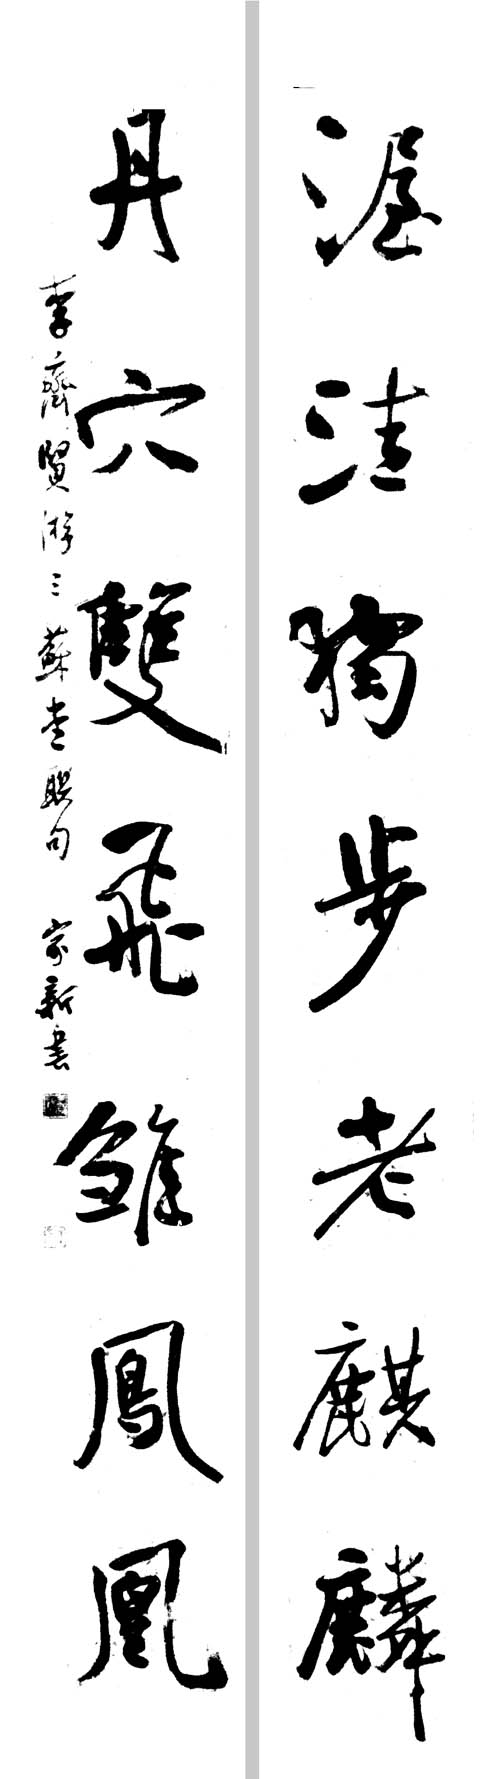 渥洼獨步老麒麟
丹穴雙飛雛鳳凰
李齊賢游三蘇堂聯句 家新書